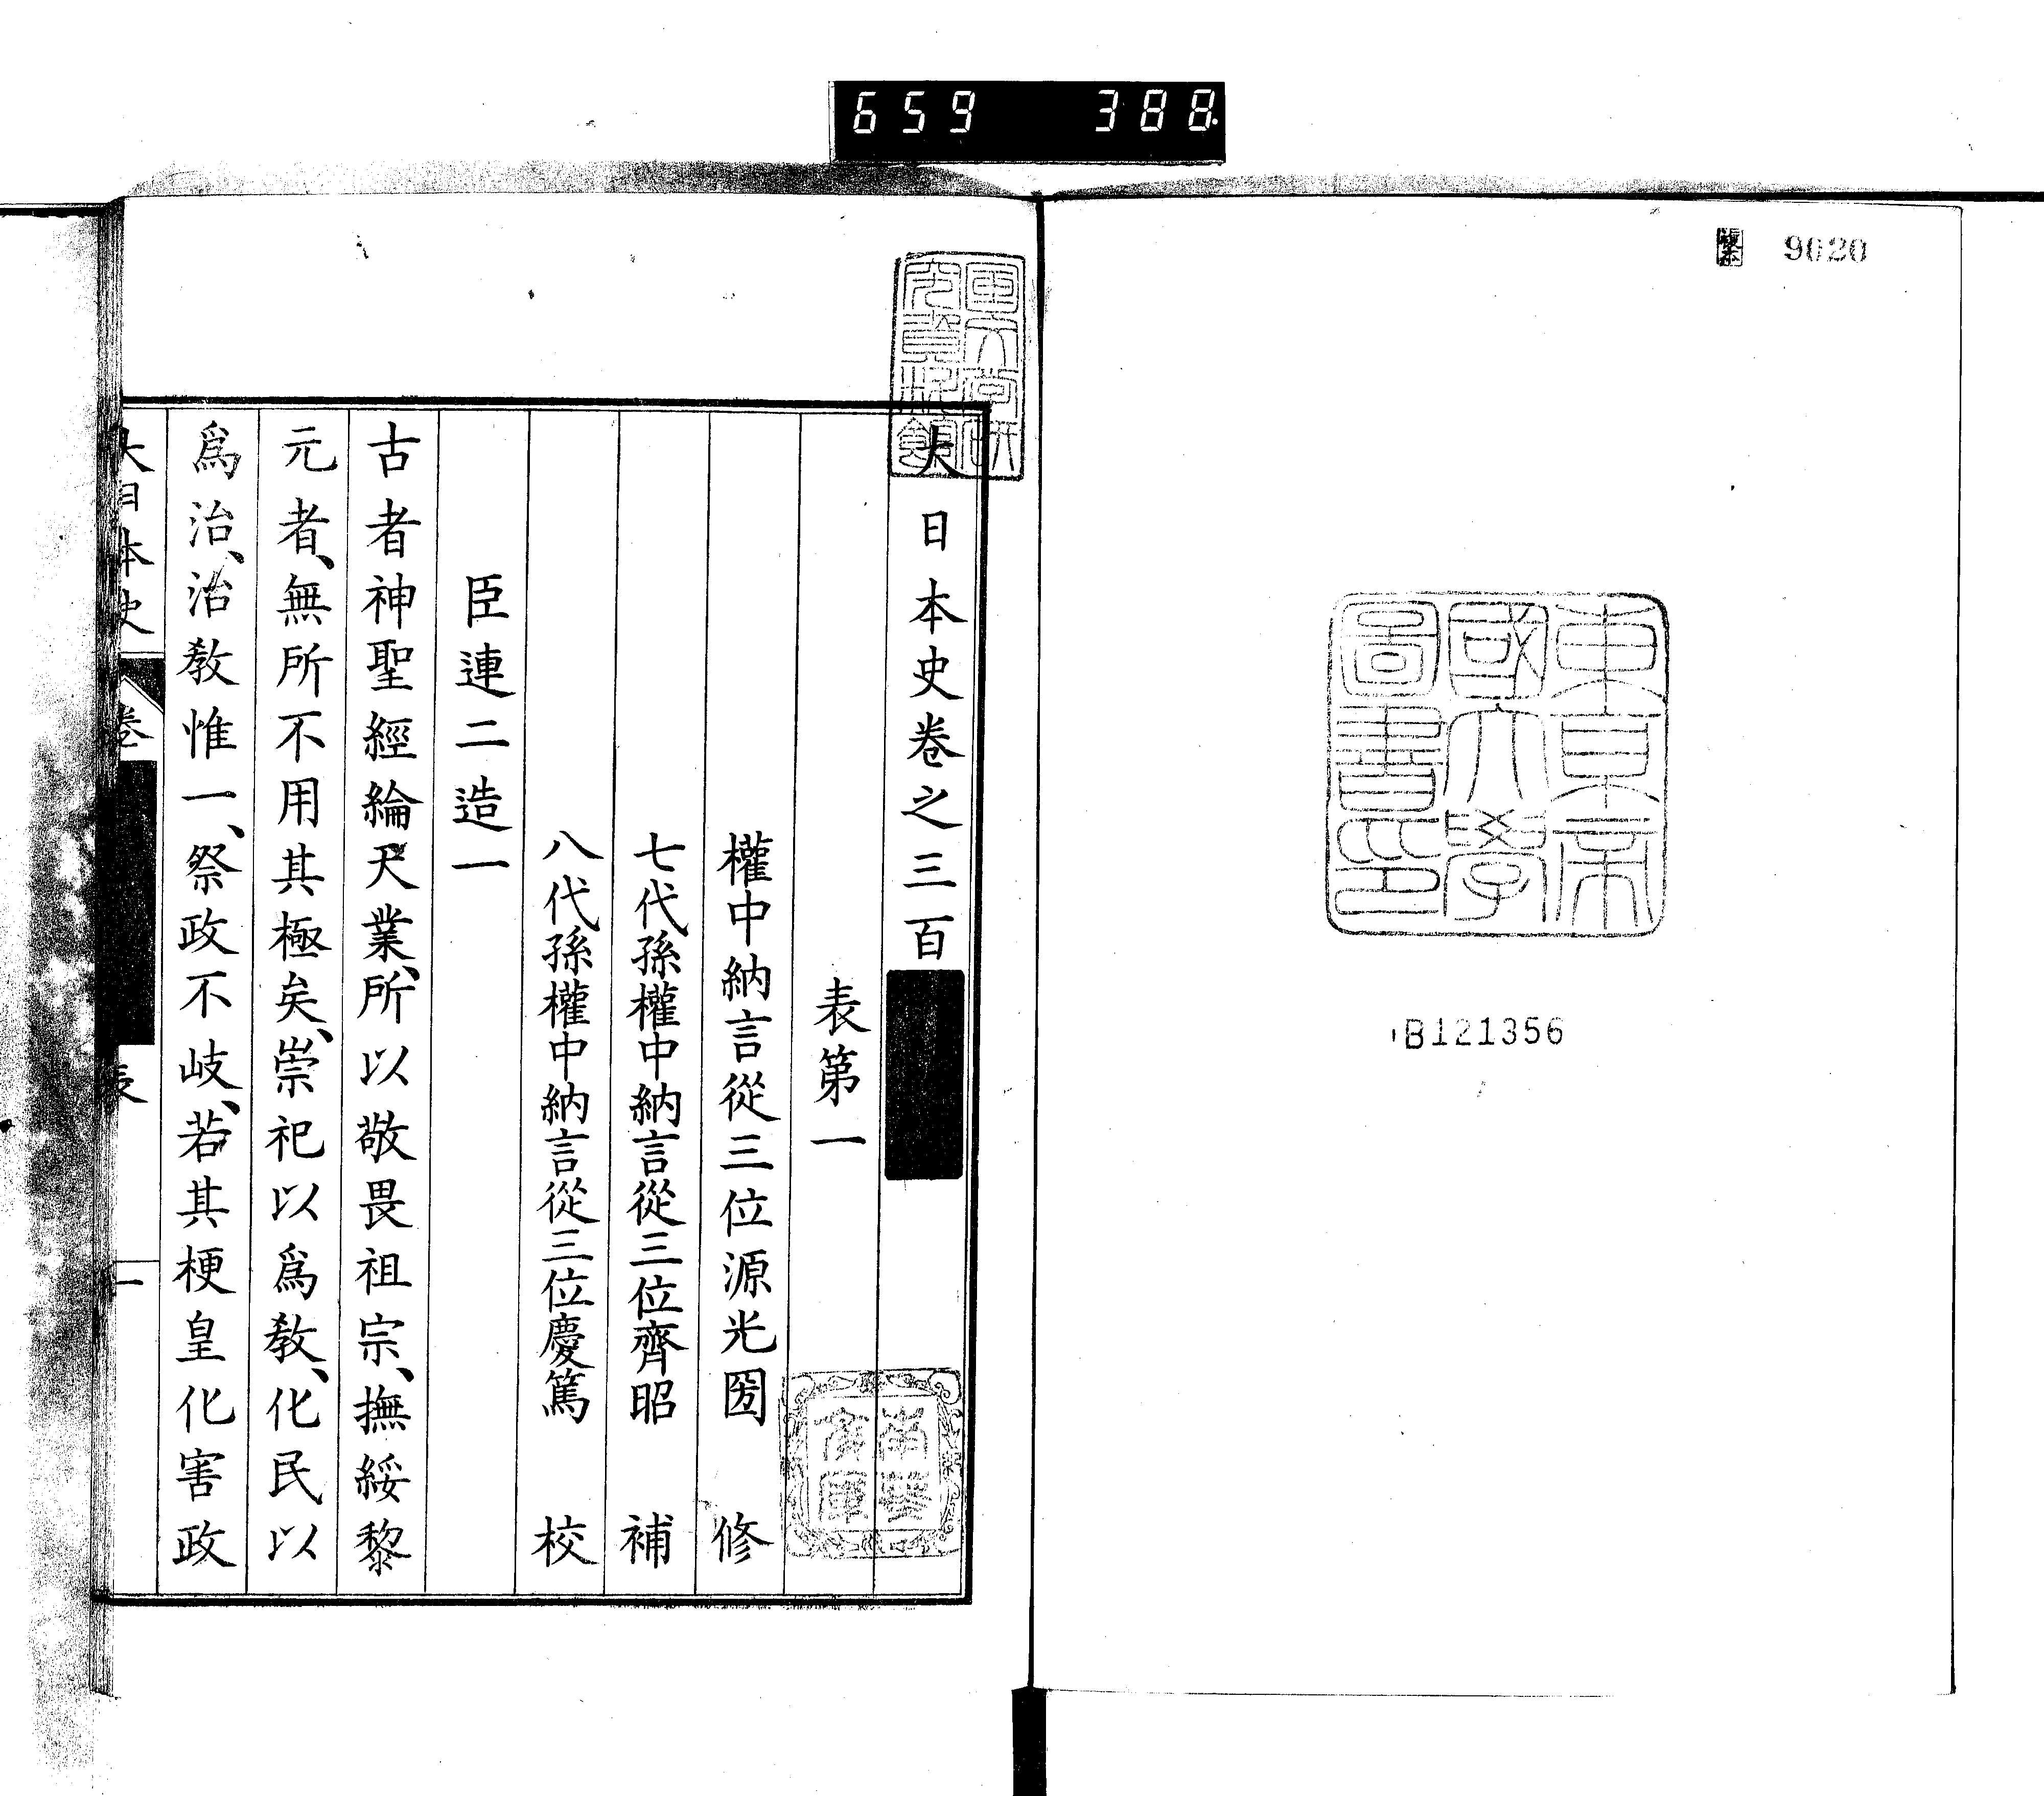 659 388
9020
東京帝
國大學
圖書印
B121356
大日本史卷之三百
表第一
權中納言從三位源光圀 修
七代孫權中納言從三位齊昭 補
八代孫權中納言從三位慶篤 校
臣連二造一
古者神聖經綸天業、所以敬畏祖宗、撫綏黎
元者、無所不用其極矣、崇祀以爲教、化民以
爲治、治教惟一、祭政不岐、若其梗皇化害政
大日本史 卷 表 一